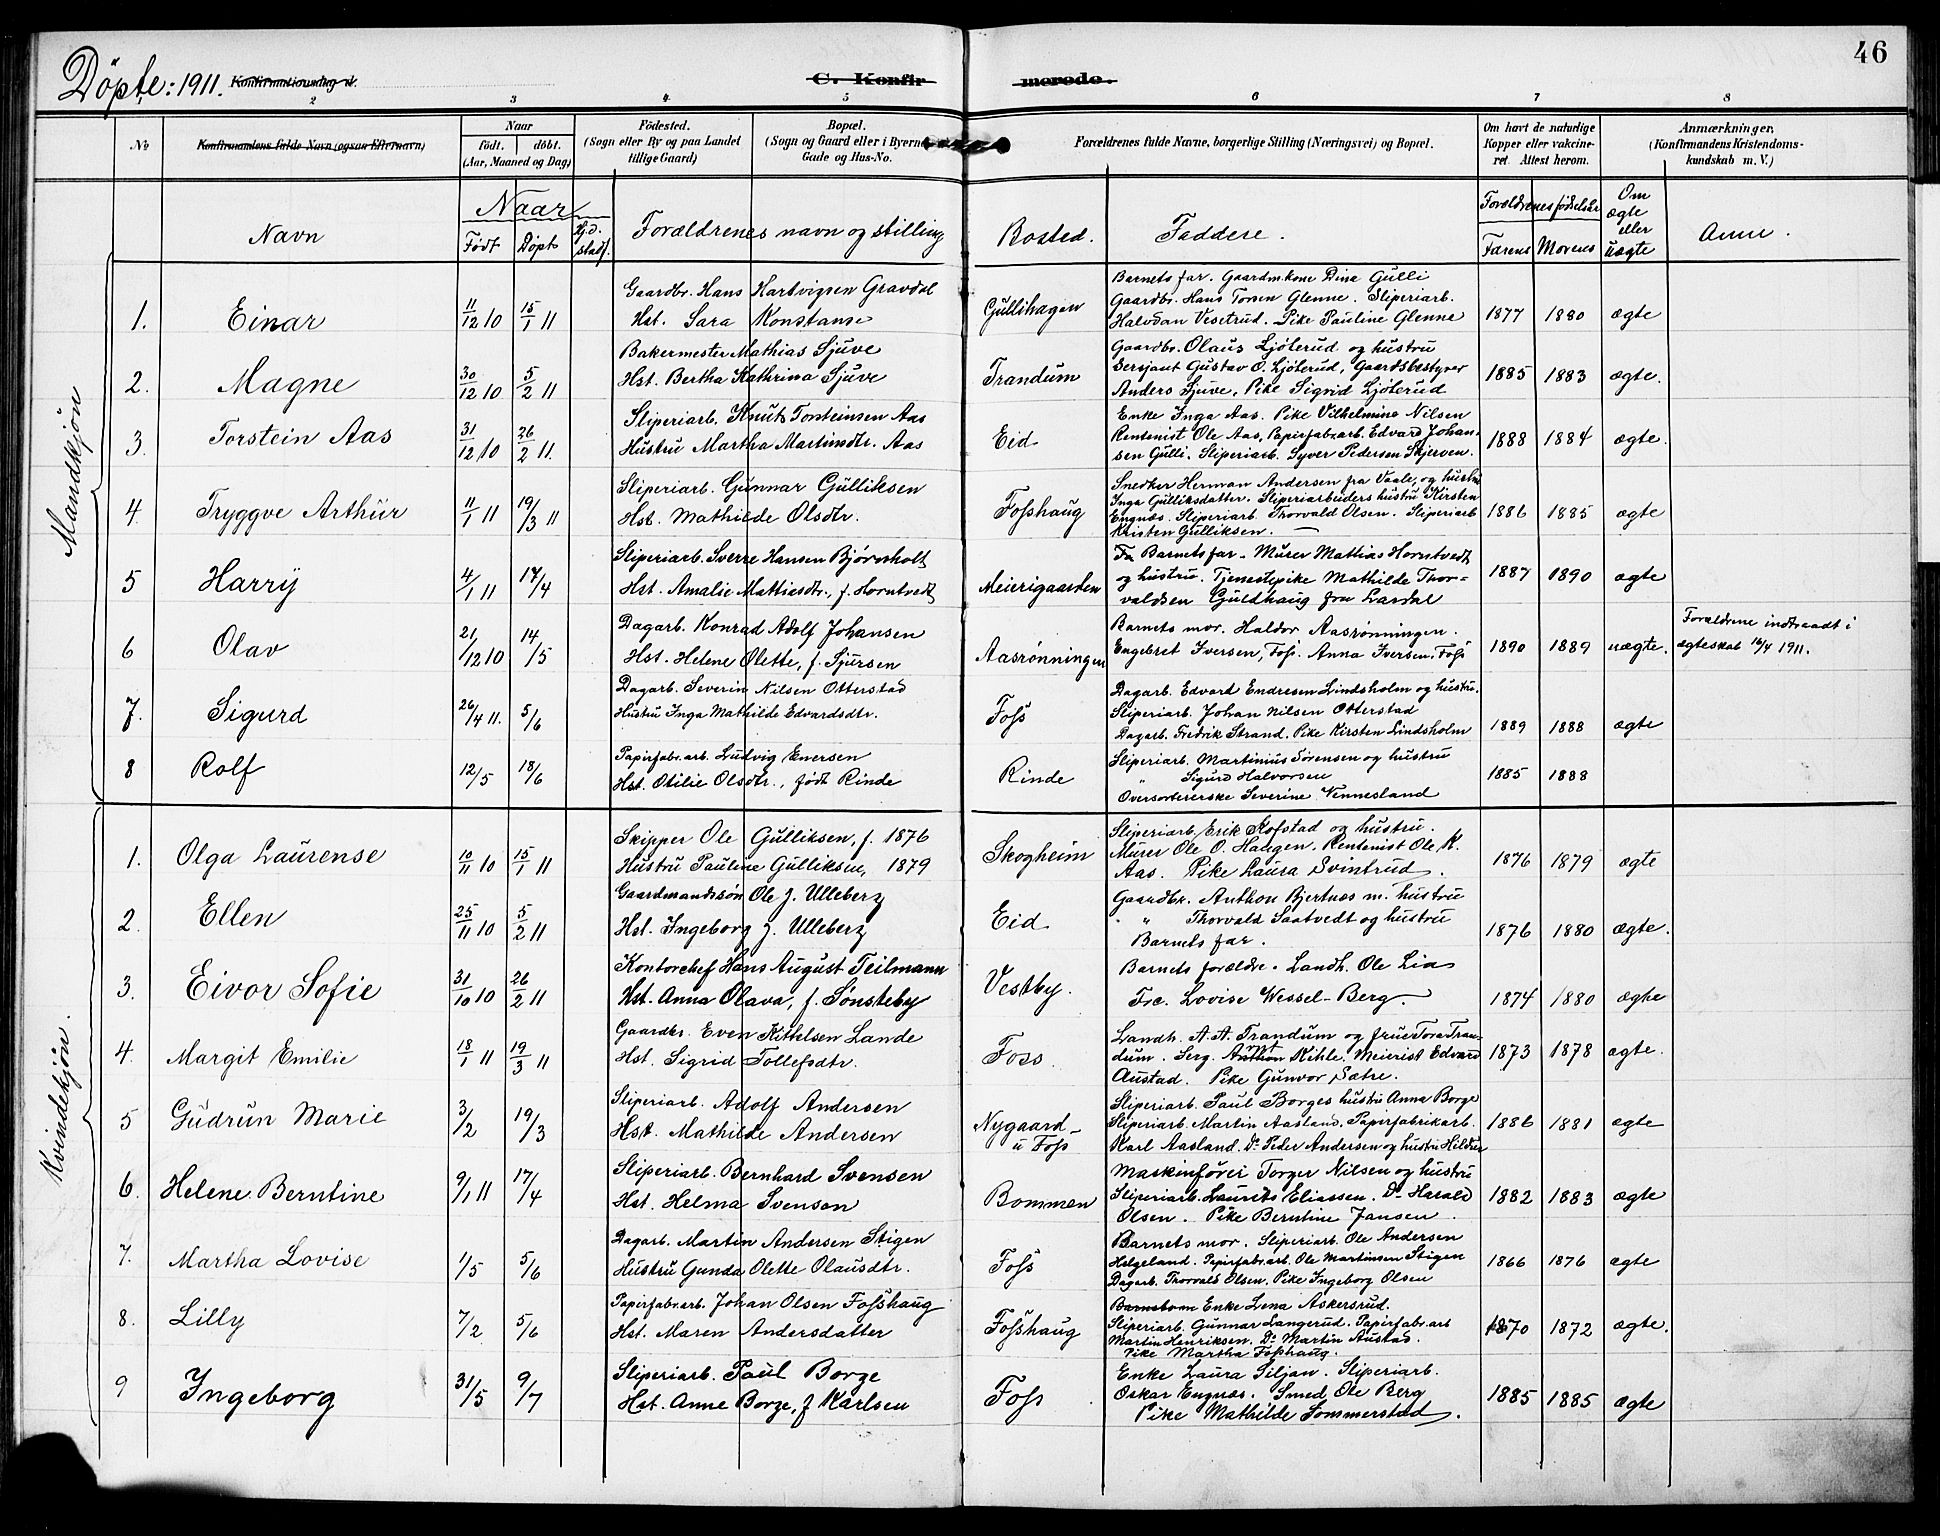 46
Döpte: 1911. Konfirmationsdag d.
C. Konfirmerede.
2 3 4 5 6 7 8
No
Konfirmandens fulde Navn (ogsaa Efternavn)
Naar
født. døbt.
(Aar, Maaned og Dag)
Fødested.
(Sogn eller By og paa Landet
tillige Gaard)
Bopæl.
(Sogn og Gaard eller i Byerne
Gade og Hus-No.
Forældrenes fulde Navne, borgerlige Stilling (Næringsvei) og Bopæl.
Om havt de naturlige
Kopper eller vakcine-
ret. Attest herom.
Anmærkninger.
(Konfirmandens Kristendoms-
kundskab m. V.)
Navn
Naar
Födt Döpt
Hjd. stadf.
Forældrenes navn og stilling
Bosted.
Faddere.
Forældrenes födselsår
Farens Morens
Om
ægte
eller
uægte
Anm.
Mandkjön
1. Einar 11/12 10 15/1 11
Gaardbr. Hans Hartvigsen Gravdal
Hst. Sara Konstanse
Gullihagen
Barnets far. Gaardm.kone Dina Gulli
Gaardbr. Hans Torsen Glenne. Sliperiarb.
Halvdan Vesetrud. Pike Pauline Glenne
1877 1880 ægte
2. Magne 30/12 10 5/2 11
Bakermester Mathias Sjuve
Hst. Bertha Kathrina Sjuve
Trandum
Gaardbr. Olaus Ljöterud og hustru
Sersjant Gustav O. Ljöterud, Gaardsbestyrer
Anders Sjuve, Pike Sigrid Ljöterud
1885 1883 ægte.
3. Torstein Aas 31/12 10 26/2 11.
Sliperiarb. Knut Torsteinsen Aas
Hustru Martha Martinsdtr. Aas
Eid
Enke Inga Aas. Pike Vilhelmine Nilsen
Rentenist Ole Aas, Papirfabr.arb. Edvard Johan-
sen Gulli. Sliperiarb. Syver Pedersen Skjerven.
1888 1884 ægte.
4. Tryggve Arthur 11/1 11 19/3 11
Sliperiarb. Gunnar Gulliksen
Hst. Mathilde Olsdtr.
Fosshaug
Snedker Herman Andersen fra Vaale, og hustru
Inga Gulliksdatter. Sliperiarbeiders hustru Kirsten
Engnæs. Sliperiarb. Thorvald Olsen. Sliperiarb
Kristen Gulliksen.
1886 1885 ægte
5 Harry 4/1 11 17/4
Sliperiarb. Sverre Hansen Björnsholt
Hst. Amalie Mattiasdtr., f. Horntvedt
Meierigaarden
Fa Barnets far. Murer Mattias Horntvedt
og hustru. Tjenestepike Mathilde Thor-
valdsen Guldhaug fra Lardal
1887 1890 ægte
6 Olav 21/12 10 14/5
Dagarb. Konrad Adolf Johansen
Hst. Helene Olette, f. Sjursen
Aasrønningen
Barnets mor. Haldor Aasrönningen.
Engebret Iversen, Foss. Anna Iversen, Foss
1890 1889 uægte.
Forældrene indtraadt i
ægteskab 16/4 1911.
7. Sigurd 26/4 11. 5/6
Dagarb. Severin Nilsen Otterstad
Hustru Inga Mathilde Edvardsdtr.
Foss
Dagarb. Edvard Endresen Lindsholm og hustru.
Sliperiarb. Johan Nilsen Otterstad
Dagarb. Fredrik Strand. Pike Kirsten Lindsholm
1889 1888 ægte
8 Rolf 12/5 18/6
Papirfabr.arb. Ludvig Enersen
Hst. Otilie Olsdtr., födt Rinde
Rinde
Sliperiarb. Martinius Sörensen og hustru
" Sigurd Halvorsen
Oversortererske Severine Vennesland
1885 1888
Kvindekjön.
1. Olga Laurense 10/11 10 15/1 11
Skipper Ole Gulliksen, f. 1876
Hustru Pauline Gulliksen, 1879
Skogheim
Sliperiarb. Erik Kofstad og hustru.
Murer Ole O. Haugen. Rentenist Ole K.
Aas. Pike Laura Svintrud.
1876 1879 ægte
2. Ellen 25/11 10 5/2 11
Gaardmandssön Ole J. Ulleberg
Hst. Ingeborg J. Ulleberg
Eid
Gaardbr. Anthon Bjertnæs m. hustru
" Thorvald Saatvedt og hustru
Barnets far.
1876 1880 ægte.
3. Eivor Sofie 31/10 10 26/2 11
Kontorchef Hans August Teilmann
Hst. Anna Olava, f. Sønsteby
Vestby.
Barnets forældre. Landh. Ole Lia
Frc. Lovise Wessel-Berg.
1874 1880 ægte
4. Margit Emilie 18/1 11 19/3 11
Gaardbr. Even Kittelsen Lande
Hst. Sigrid Tollefsdtr.
Foss
Landh. A. A. Trandum og frue Tora Tran-
dum. Serg. Anthon Kihle. Meierist Edvard
Austad. Pike Gunvor Sætre.
1873 1878 ægte.
5 Gudrun Marie 3/2 19/3
Sliperiarb. Adolf Andersen
Hst. Mathilde Andersen
Nygaard
u Foss
Sliperiarb. Paul Borges hustru Anna Borge
Sliperiarb. Martin Aasland. Papirfabrikarb.
Karl Aasland. Do Peder Andersen og hustru Heldren
1886 1881 ægte
6. Helene Berntine 9/1 11 17/4
Sliperiarb. Bernhard Svensen
Hst. Helma Svensen
Bommen
Maskinförer Torger Nilsen og hustru
Sliperiarb. Laurits Eliassen. Do Harald
Olsen. Pike Berntine Jansen.
1882 1883 ægte
7. Martha Lovise 1/5 5/6
Dagarb. Martin Andersen Stigen
Hustru Gunda Olette Olausdtr.
Foss
Barnets mor. Sliperiarb. Ole Andersen
Helgeland. Papirfabr.arb. Ole Martinsen Stigen
Dagarb. Thorvald Olsen. Pike Ingeborg Olsen
1866 1876 ægte
8. Lilly 7/2 5/6
Papirfabr.arb. Johan Olsen Fosshaug
Hst. Maren Andersdatter
Fosshaug
Enke Lena Askersrud.
Sliperiarb. Gunnar Langerud. Papirfabr.arb
Martin Henriksen. Do Martin Austad.
Pike Martha Fosshaug.
1870 1872 ægte.
9 Ingeborg 31/5 9/7
Sliperiarb. Paul Borge
Hst. Anne Borge, f Karlsen
Foss
Enke Laura Siljan. Sliperiarb.
Oskar Engnæs. Smed Ole Berg
Pike Mathilde Sommerstad.
1885 1885 ægte